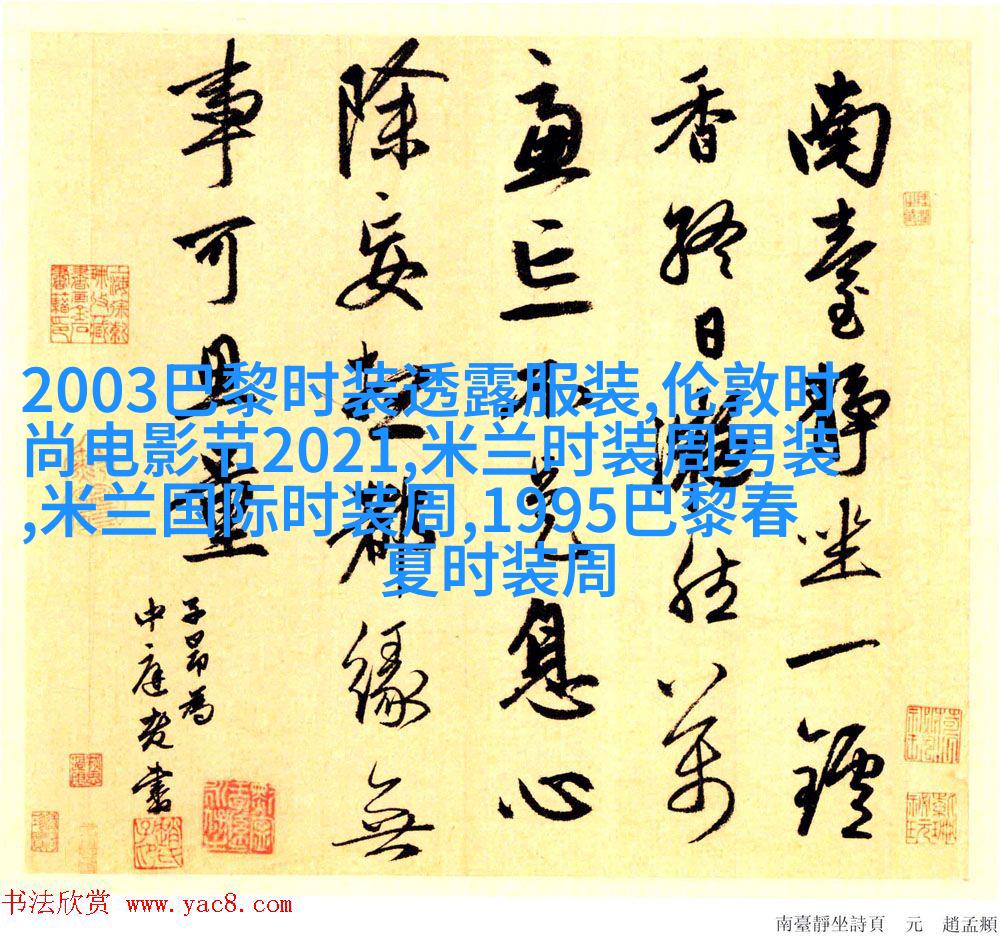 南臺靜坐一鑪
香終日凝然萬
慮亡不是息心
除妄想都緣無
事可量
子昂為
中庭老書
2003巴黎时装透露服装,伦敦时
尚电影节2021,米兰时装周男装
,米兰国际时装周,1995巴黎春
夏时装周
书法欣赏 www.yac8.com
南臺靜坐詩頁 元 趙孟頫